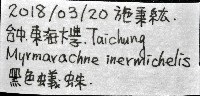 2018/03/20 施秉紘.
台中.東海大學.Taichung
Myrmarachne inermichelis
黑色蟻蛛.